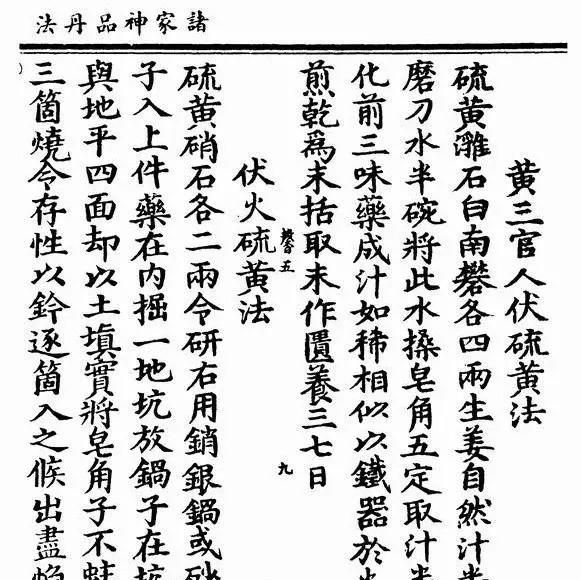 諸家神品丹法
黃三官人伏硫黃法
硫黃濰石白南礬各四兩生姜自然汁半
磨刀水半碗將此水搡皂角五定取汁半
化前三味藥成汁如稀相似以鐵器於火
煎乾爲末括取末作匱養三七日
五 九
伏火硫黃法
硫黃硝石各二兩令研右用銷銀鍋或砂
子入上件藥在內掘一地坑放鍋子在坑
與地平四面却以土填實將皂角子不蛀
三箇燒令存性以鈐逐箇入之候出盡焰